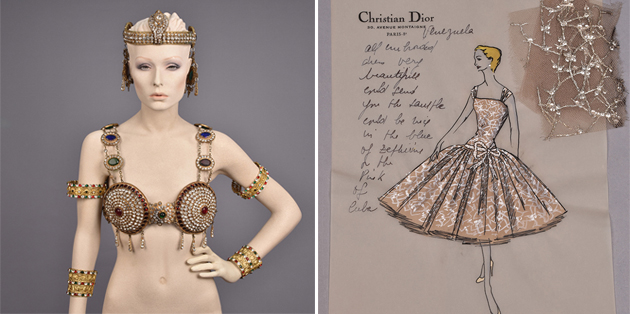 Christian Dior
30, AVENUE MONTAIGNE
PARIS 8e
Venezuela
all embroided
dress very
beautifull
could send
you the sample
could be nice
in the blue
of Zephirine
or the
Pink
of
Cuba